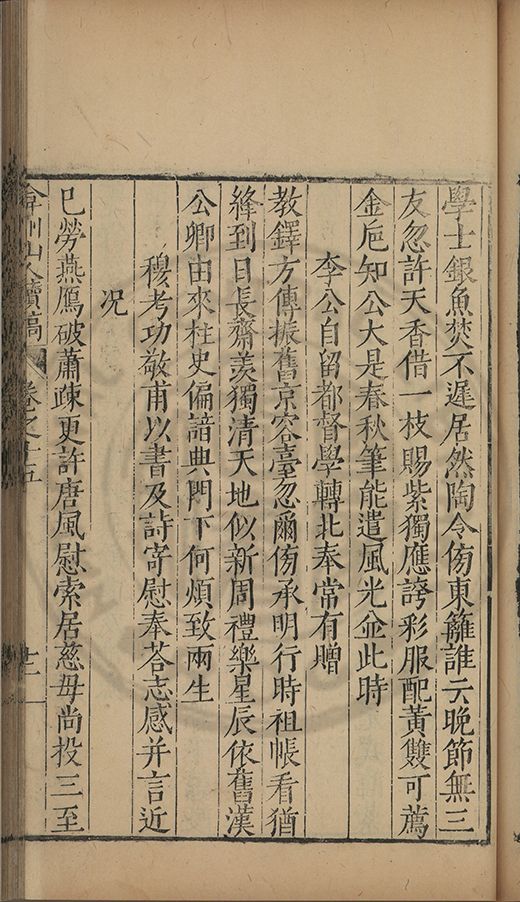 學士銀魚焚不遲居然陶令傍東籬誰云晚節無三
友忽許天香借一枝賜紫獨應誇彩服配黃雙可薦
金巵知公大是春秋筆能遣風光並此時
李公自留都督學轉北奉常有贈
教鐸方傳振舊京容臺忽爾傍承明行時祖帳看猶
綘到日長齋羡獨清天地似新周禮樂星辰依舊漢
公卿由來柱史偏諳典門下何煩致兩生
穆考功敬甫以書及詩寄慰奉荅志感并言近
况
巳勞燕鴈破蕭疎更許唐風慰索居慈毋尚投三至
弇州山人續稿 卷之十五 十二